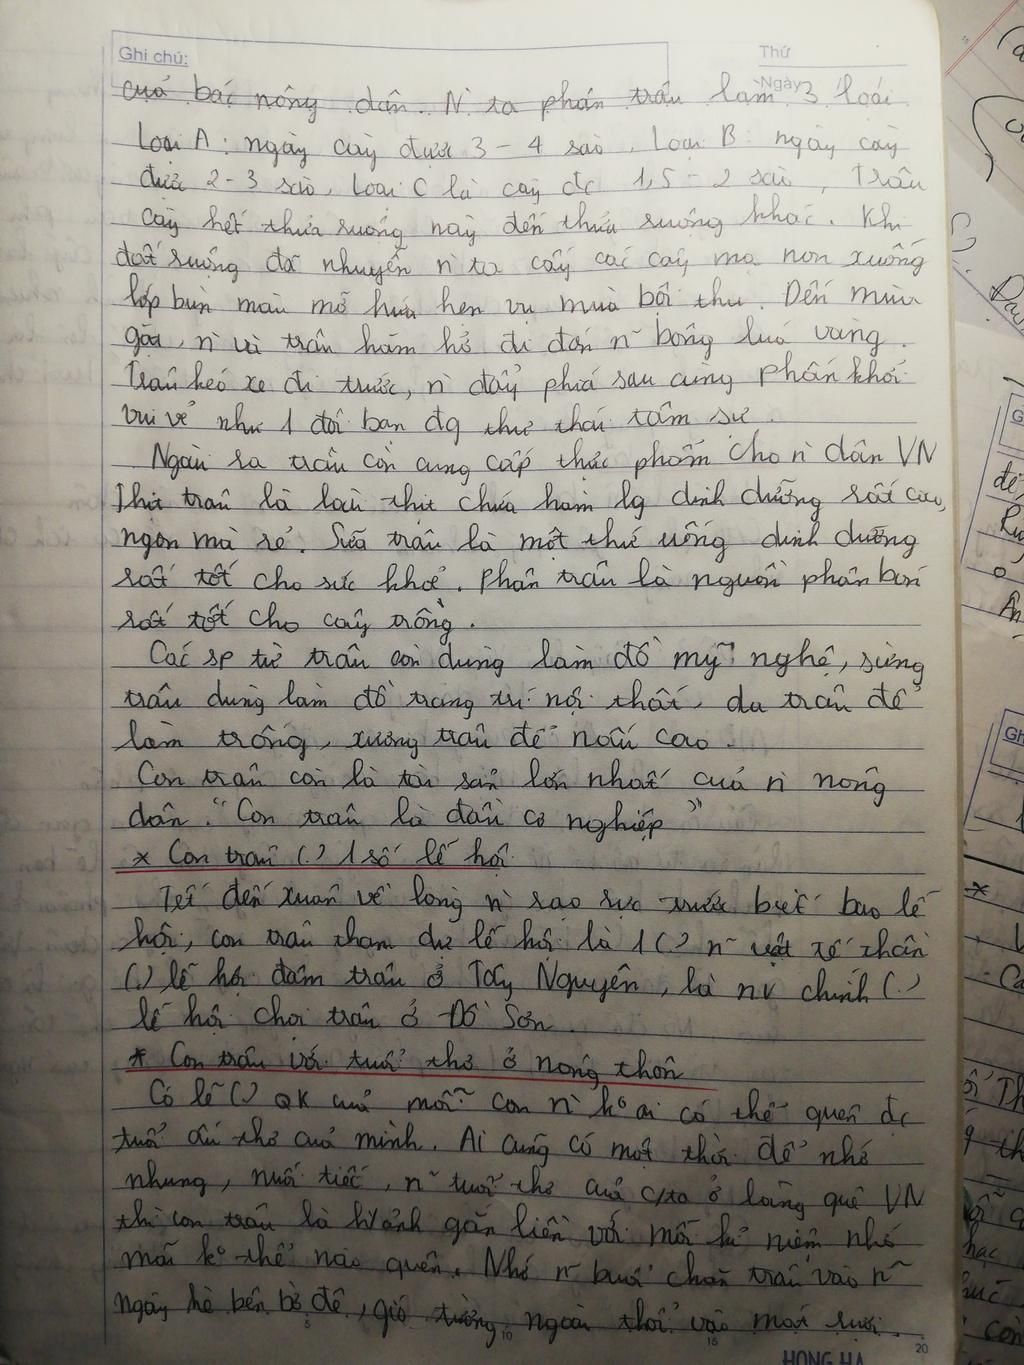 Ghi chú:
Thứ
Ngày
của bác nông dân. N` ta phân trâu làm 3 loại
Loại A: ngày cày được 3 - 4 sào. Loại B: ngày cày
được 2 - 3 sào, Loại C là cày đc 1,5 - 2 sào, Trâu
cày hết thửa ruộng này đến thửa ruộng khác. Khi
đất ruộng đã nhuyễn n` ta cấy các cây mạ non xuống
lớp bùn màu mỡ hứa hẹn vụ mùa bội thu. Đến mùa
gặt, n` và trâu hăm hở đi đón n~ bông lúa vàng.
Trâu kéo xe đi trước, n` đẩy phía sau cùng phấn khởi
vui vẻ như 1 đôi bạn đg thư thái tâm sự.
Ngoài ra trâu còn cung cấp thực phẩm cho n` dân VN
Thịt trâu là loại thịt chứa hàm lg dinh dưỡng rất cao,
ngon mà rẻ. Sữa trâu là một thứ uống dinh dưỡng
rất tốt cho sức khoẻ. Phân trâu là nguồn phân bón
rất tốt cho cây trồng.
Các sp từ trâu còn dùng làm đồ mỹ nghệ, sừng
trâu dùng làm đồ trang trí nội thất, da trâu để
làm trống, xương trâu để nấu cao.
Con trâu còn là tài sản lớn nhất của n` nông
dân. "Con trâu là đầu cơ nghiệp"
* Con trâu (.) 1 số lễ hội
Tết đến xuân về lòng n` rạo rực trước biết bao lễ
hội, con trâu tham dự lễ hội là 1 (.) n~ vật tế thần
(.) lễ hội đâm trâu ở Tây Nguyên, là nv chính (.)
lễ hội chọi trâu ở Đồ Sơn.
* Con trâu với tuổi thơ ở nông thôn
Có lẽ (.) QK của mỗi con n` ko ai có thể quên đc
tuổi ấu thơ của mình. Ai cũng có một thời để nhớ
nhung, nuối tiếc, n~ tuổi thơ của c/ta ở làng quê VN
thì con trâu là h/ảnh gắn liền với mỗi kỉ niệm nhớ
mãi ko thể nào quên. Nhớ n~ buổi chăn trâu vào n~
ngày hè bên bờ đê, gió từng ngoài thổi vào mát rượi.
5 10 15 20
HONG HA